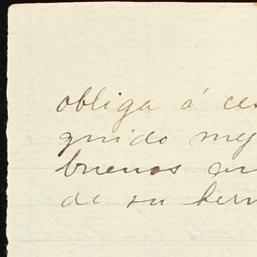 obliga á ce
guido mej
buenos
de su her